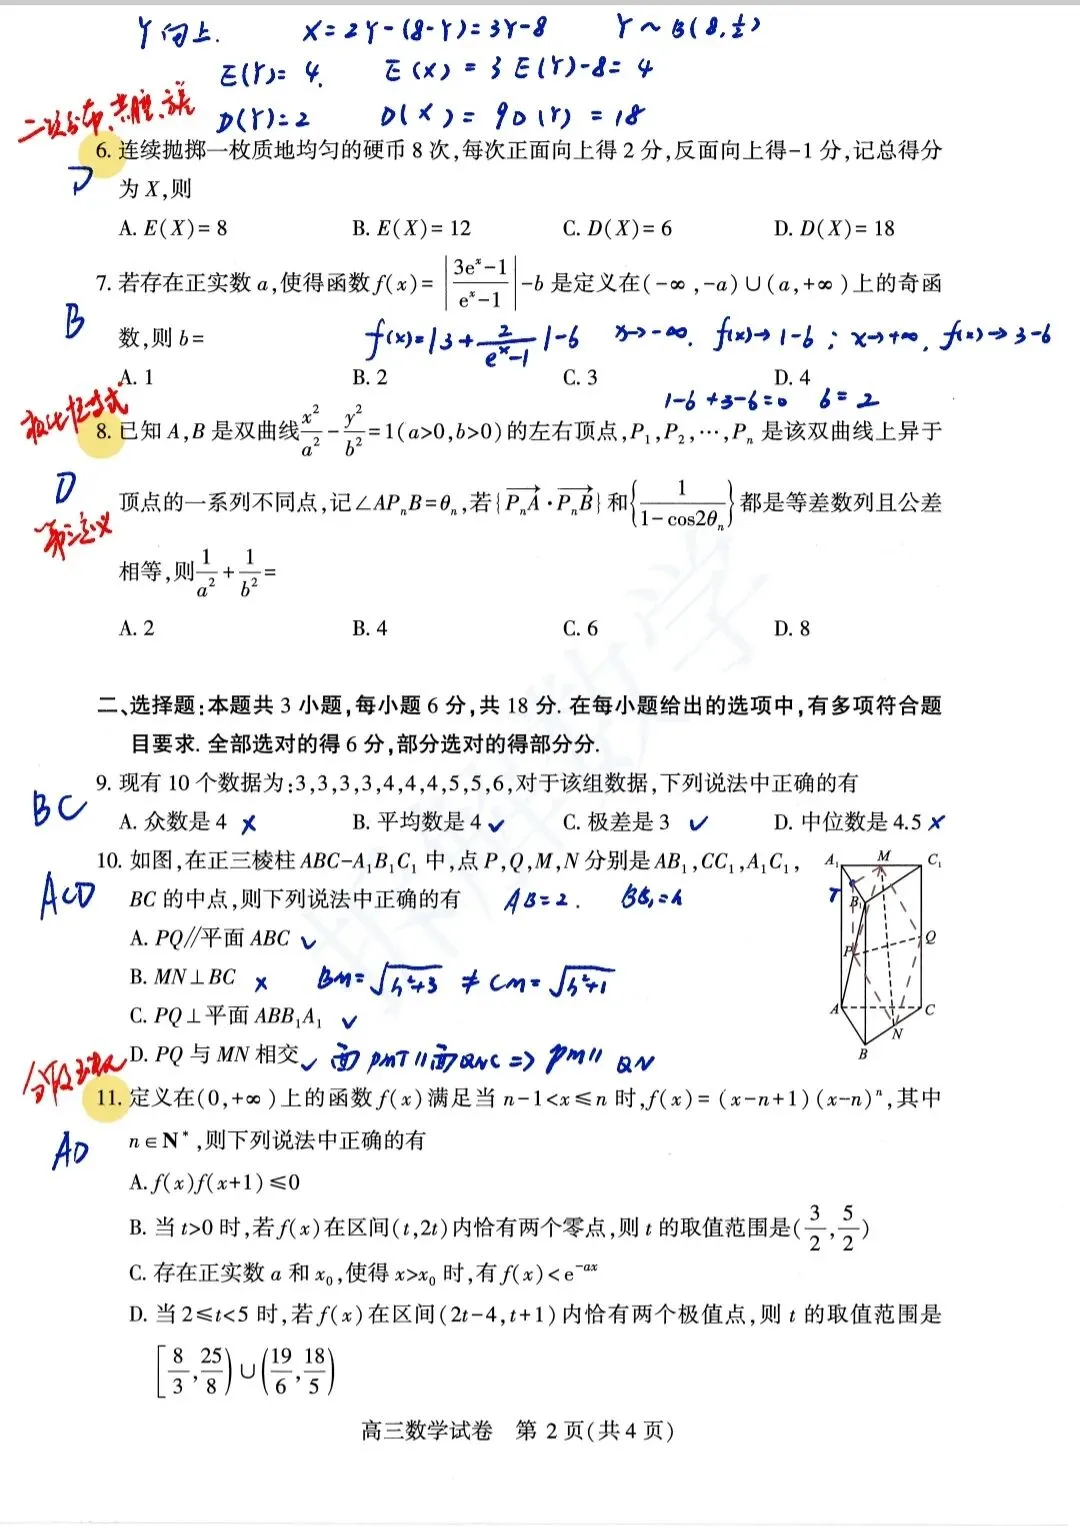 Y向上. X=2Y-(8-Y)=3Y-8 Y~B(8,½)
E(Y)=4. E(X)=3E(Y)-8=4
D(Y)=2 D(X)=9D(Y)=18
6. 连续抛掷一枚质地均匀的硬币8次,每次正面向上得2分,反面向上得-1分,记总得分
D
为X,则
A. E(X)=8 B. E(X)=12 C. D(X)=6 D. D(X)=18
7. 若存在正实数a,使得函数f(x)=|(3eˣ-1)/(eˣ-1)|-b是定义在(-∞,-a)∪(a,+∞)上的奇函
B
数,则b=
f(x)=|3+2/(eˣ-1)|-b x→-∞, f(x)→1-b; x→+∞, f(x)→3-b
A. 1 B. 2 C. 3 D. 4
1-b+3-b=0 b=2
8. 已知A,B是双曲线x²/a²-y²/b²=1(a>0,b>0)的左右顶点,P₁,P₂,⋯,Pₙ是该双曲线上异于
D
第三定义
顶点的一系列不同点,记∠APₙB=θₙ,若{PₙA→·PₙB→}和{1/(1-cos2θₙ)}都是等差数列且公差
相等,则1/a²+1/b²=
A. 2 B. 4 C. 6 D. 8
二、选择题:本题共3小题,每小题6分,共18分. 在每小题给出的选项中,有多项符合题
目要求. 全部选对的得6分,部分选对的得部分分.
9. 现有10个数据为:3,3,3,3,4,4,4,5,5,6,对于该组数据,下列说法中正确的有
BC
A. 众数是4 × B. 平均数是4 ✓ C. 极差是3 ✓ D. 中位数是4.5 ×
10. 如图,在正三棱柱ABC-A₁B₁C₁中,点P,Q,M,N分别是AB₁,CC₁,A₁C₁,
ACD
BC的中点,则下列说法中正确的有 AB=2. BB₁=h
A. PQ∥平面ABC ✓
B. MN⊥BC × BM=√(h²+3) ≠ CM=√(h²+1)
C. PQ⊥平面ABB₁A₁ ✓
D. PQ与MN相交 ✓ 面PMT∥面QNC⇒PM∥QN
A₁ M C₁
T B₁
P Q
A C
N
B
11. 定义在(0,+∞)上的函数f(x)满足当n-1<x≤n时,f(x)=(x-n+1)(x-n)ⁿ,其中
AD
n∈N*,则下列说法中正确的有
A. f(x)f(x+1)≤0
B. 当t>0时,若f(x)在区间(t,2t)内恰有两个零点,则t的取值范围是(3/2,5/2)
C. 存在正实数a和x₀,使得x>x₀时,有f(x)<e⁻ᵃˣ
D. 当2≤t<5时,若f(x)在区间(2t-4,t+1)内恰有两个极值点,则t的取值范围是
[8/3,25/8)∪(19/6,18/5)
高三数学试卷 第2页(共4页)